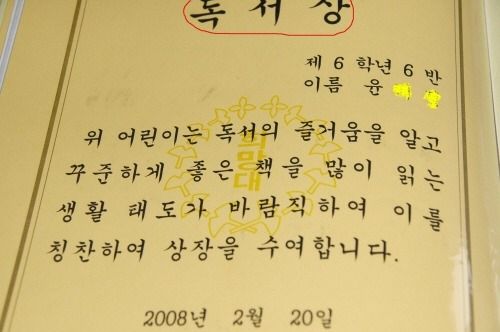 독서상
제 6 학년 6 반
이름 윤
위 어린이는 독서의 즐거움을 알고
꾸준하게 좋은 책을 많이 읽는
생활 태도가 바람직하여 이를
칭찬하여 상장을 수여합니다.
2008년 2월 20일